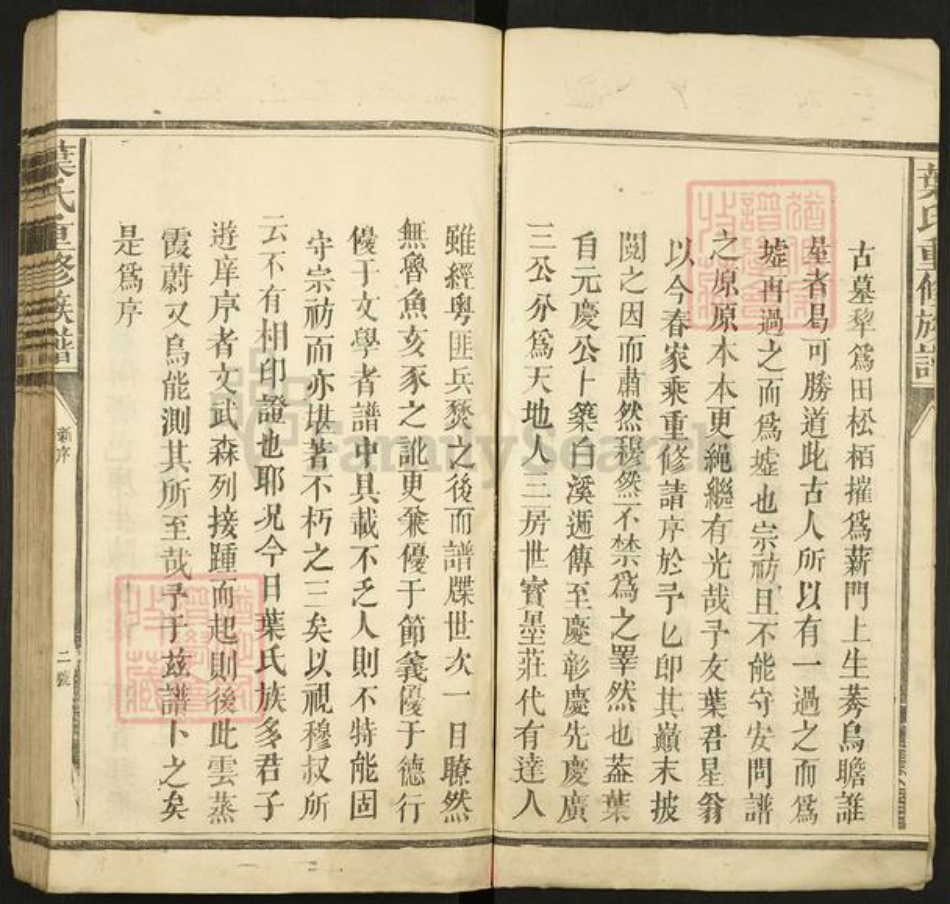 葉氏重修族譜
古墓犂爲田松栢摧爲薪門上生莠烏瞻誰
屋者曷可勝道此古人所以有一過之而爲
墟再過之而爲墟也宗祊且不能守安問譜
之原原本本更繩繼有光哉予友葉君星翁
以今春家乘重修請序於予乜卽其巔末披
閱之因而肅然穆然不禁爲之睪然也葢葉
自元慶公卜築白溪遞傳至慶彰慶先慶廣
三公分爲天地人三房世寳墨莊代有達人
雖經粤匪兵燹之後而譜牒世次一目瞭然
無魯魚亥豕之訛更兼優于節義優于德行
優于文學者譜中具載不乏人則不特能固
守宗祊而亦堪著不朽之三矣以視穆叔所
云不有相印證也耶况今日葉氏族多君子
遊庠序者文武森列接踵而起則後此雲蒸
霞蔚又烏能測其所至哉予于茲譜卜之矣
是爲序
葉氏重修族譜
新序
二號
FamilySearch